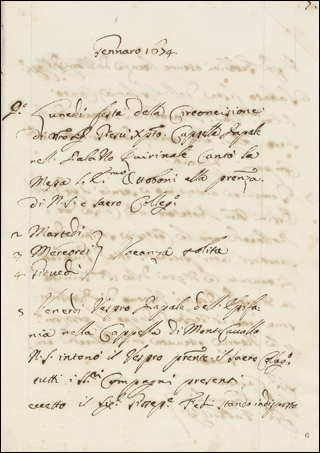 Gennaro 1674
P.o Lunedi festa della Circoncisione
di Giesù Xpto. Cappella Papale
nel Palazzo Quirinale, cantò la
Messa Ottoboni alla prenza.
di N.S. e Sacro Colleg.o
2 Martedi
3 Mercordi vacanza solita
4 Giovedi
5 Venerdi Vespro Papale dell' Epifa
nia nella Cappella di Monte Cavallo
N.S. intonò il Vespro pnte. il sacro Colleg.o
tutti i Compagni presenti
eccetto il indisposto
6